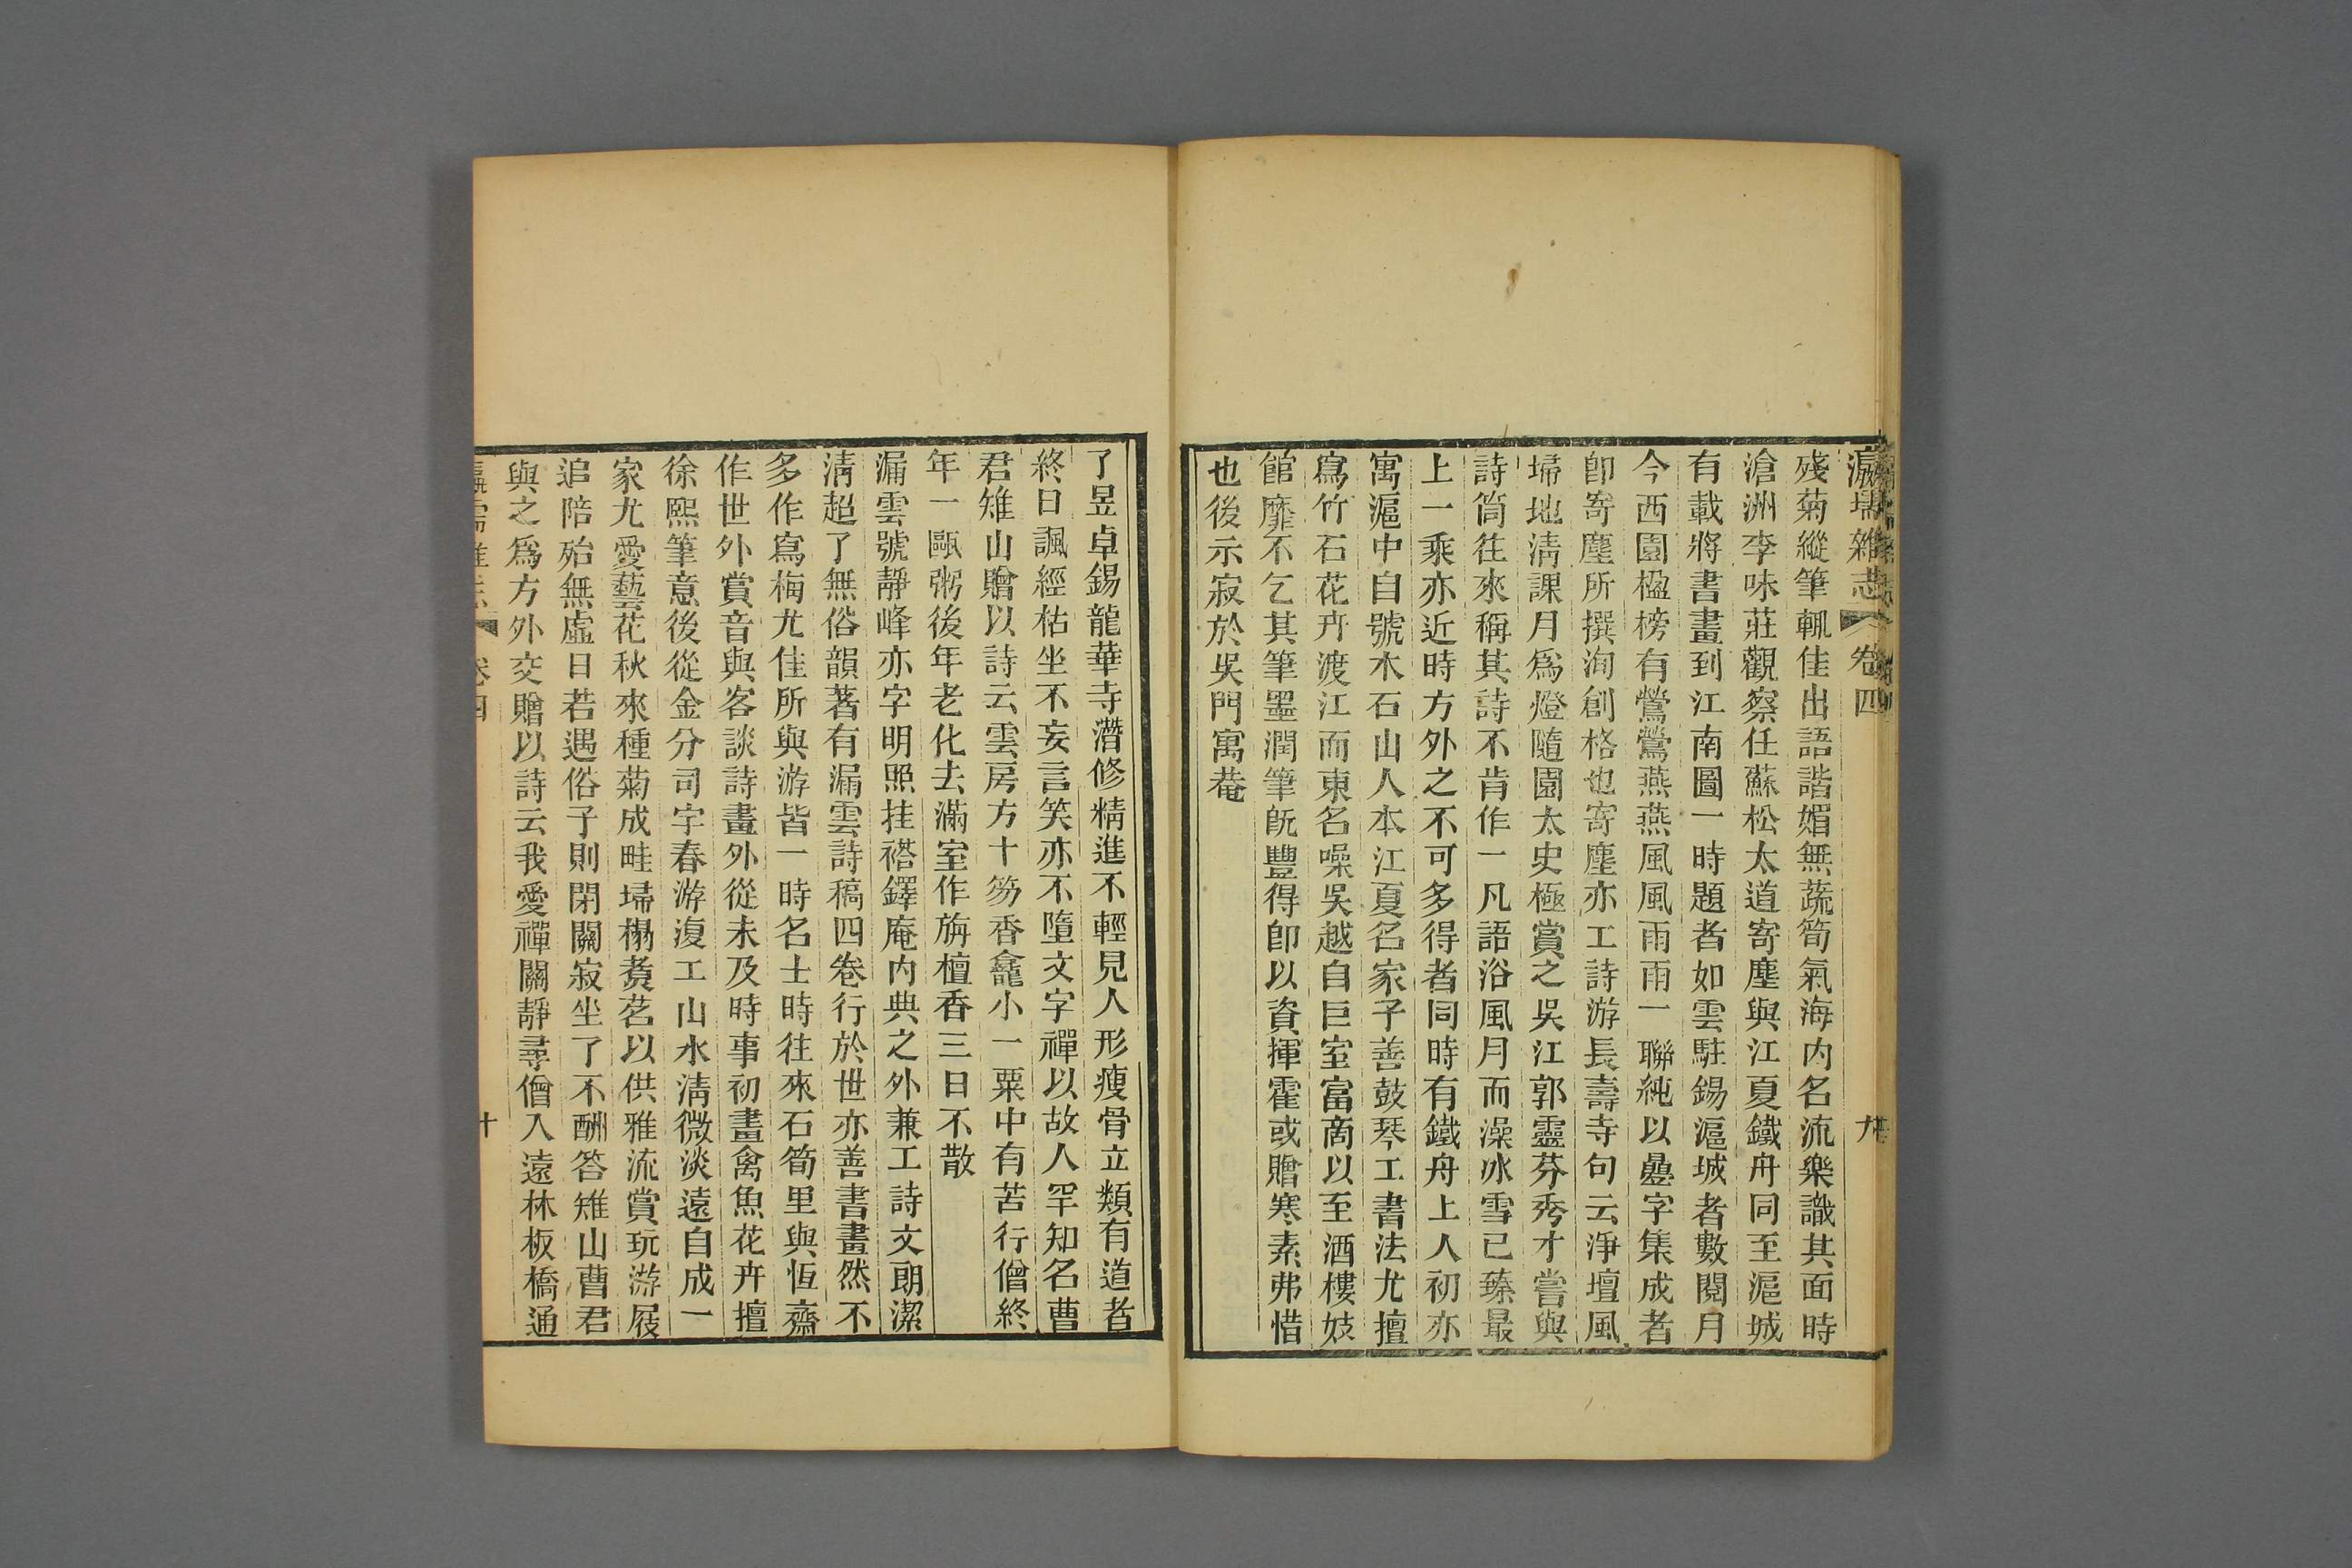 瀛壖雜志 卷四 九
殘菊縱筆輒佳出語諧婣無蔬筍氣海內名流樂識其面時
滄洲李味莊觀察任蘇松太道寄塵與江夏鐵舟同至滬城
有載將書畫到江南圖一時題者如雲駐錫滬城者數閱月
今西園楹榜有鶯鶯燕燕風風雨雨一聯純以疊字集成者
卽寄塵所撰洵創格也寄塵亦工詩游長壽寺句云淨壇風
埽地淸課月爲燈隨園太史極賞之吳江郭靈芬秀才嘗與
詩筒往來稱其詩不肯作一凡語浴風月而澡冰雪已臻最
上一乘亦近時方外之不可多得者同時有鐵舟上人初亦
寓滬中自號木石山人本江夏名家子善鼓琴工書法尤擅
寫竹石花卉渡江而東名噪吳越自巨室富商以至酒樓妓
館靡不乞其筆墨潤筆旣豐得卽以資揮霍或贈寒素弗惜
也後示寂於吳門寓菴
了昱卓錫龍華寺潛修精進不輕見人形瘦骨立類有道者
終日諷經枯坐不妄言笑亦不墮文字禪以故人罕知名曹
君雉山贈以詩云雲房方十笏香龕小一粟中有苦行僧終
年一甌粥後年老化去滿室作旃檀香三日不散
漏雲號靜峰亦字明照挂褡鐸庵内典之外兼工詩文朗潔
淸超了無俗韻著有漏雲詩稿四卷行於世亦善書畫然不
多作寫梅尤佳所與游皆一時名士時往來石筍里與恆齋
作世外賞音與客談詩畫外從未及時事初畫禽魚花卉擅
徐熙筆意後從金分司字春游復工山水淸微淡遠自成一
家尤愛藝花秋來種菊成畦埽榻煑茗以供雅流賞玩游屐
追陪殆無虛日若遇俗子則閉關寂坐了不酬答雉山曹君
與之爲方外交贈以詩云我愛禪關靜尋僧入遠林板橋通
卷四 十